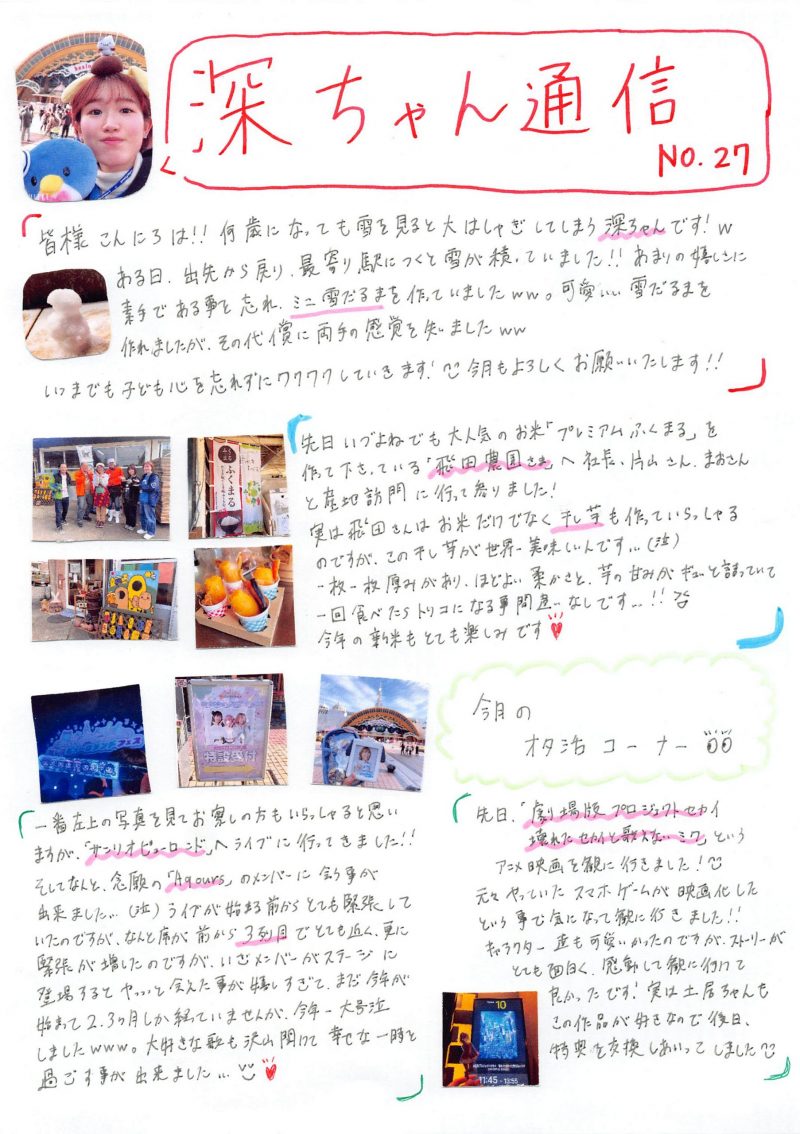 深ちゃん通信
NO.27
皆様 こんにちは!! 何歳になっても雪を見ると大はしゃぎしてしまう深ちゃんです!w
ある日、出先から戻り、最寄り駅につくと雪が積っていました!! あまりの嬉しさに
素手である事を忘れ、ミニ雪だるまを作っていましたww。可愛いい雪だるまを
作れましたが、その代償に両手の感覚を失いましたww
いつまでも子ども心を忘れずにワクワクしていきます! 今月もよろしくお願いいたします!!
先日いづよねでも大人気のお米「プレミアムふくまる」を
作って下さっている「飛田農園さま」へ社長、片山さん、まおさん
と産地訪問に行って参りました!
実は飛田さんはお米だけでなく干し芋も作っていらっしゃる
のですが、この干し芋が世界一美味しいんです...(泣)
一枚一枚厚みがあり、ほどよい柔かさと、芋の甘みがギュッと詰まっていて
一回食べたらトリコになる事間違いなしです...!!
今年の新米もとても楽しみです
ふくまる
今月の
オタ活コーナー
一番左上の写真を見てお察しの方もいらっしゃると思い
ますが、「サンリオピューロランド」へライブに行ってきました!!
そしてなんと、念願の「Aqours」のメンバーに会う事が
出来ました...(泣) ライブが始まる前からとても緊張して
いたのですが、なんと席が前から3列目でとても近く、更に
緊張が増したのですが、いざメンバーがステージに
登場するとやっっと会えた事が嬉しすぎて、まだ今年が
始まって2.3ヶ月しか経っていませんが、今年一大号泣
しましたwww。大好きな歌も沢山聞けて幸せな一時を
過ごす事が出来ました...
先日、「劇場版プロジェクトセカイ
壊れたセカイと歌えないミク」という
アニメ映画を観に行きました!
元々やっていたスマホゲームが映画化した
という事で気になって観に行きました!!
キャラクター達も可愛いかったのですが、ストーリーが
とても面白く、感動して観に行けて
良かったです! 実は土居ちゃんも
この作品が好きなので後日、
特典を交換しあいっこしました
10
11:45 - 13:55